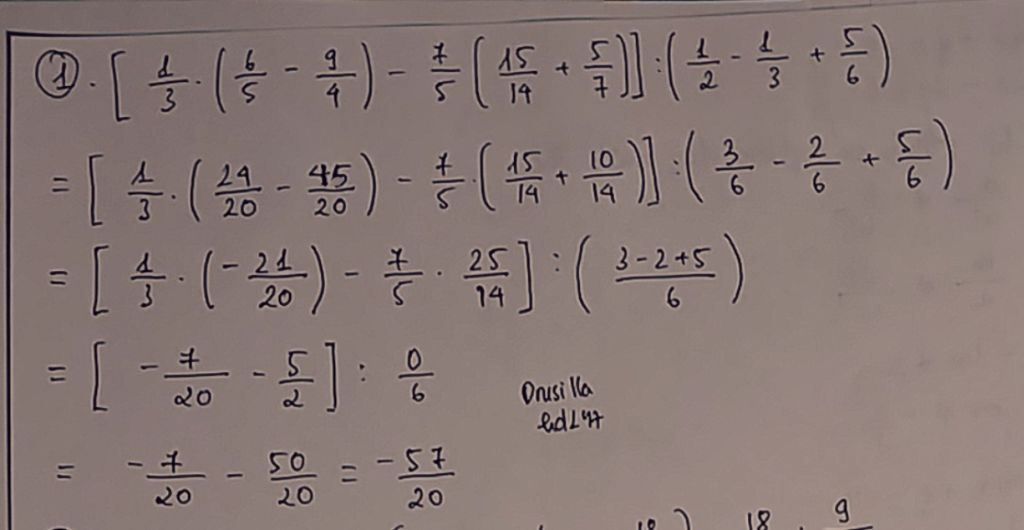 ①. [ 1/3 · ( 6/5 - 9/4 ) - 7/5 ( 15/14 + 5/7 ) ] : ( 1/2 - 1/3 + 5/6 )
= [ 1/3 · ( 24/20 - 45/20 ) - 7/5 · ( 15/14 + 10/14 ) ] : ( 3/6 - 2/6 + 5/6 )
= [ 1/3 · ( - 21/20 ) - 7/5 · 25/14 ] : ( 3-2+5/6 )
= [ - 7/20 - 5/2 ] : 0/6
Drusilla
= - 7/20 - 50/20 = - 57/20
18 18 9